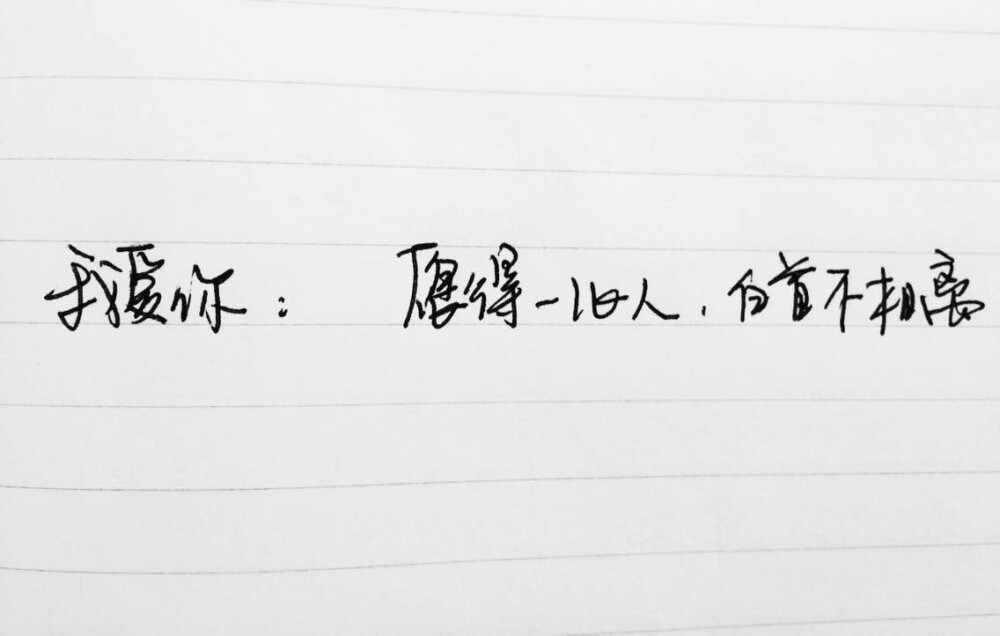 我爱你： 愿得一心人，白首不相离